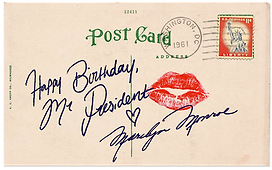 12411
Post Card
ADDRESS
WASHINGTON, DC
1961
Happy Birthday,
Mr President
Marilyn Monroe